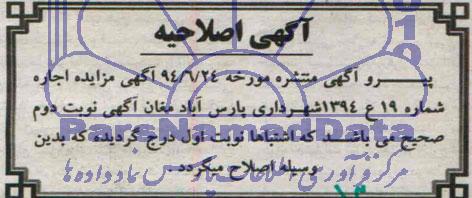 آگهی اصلاحیه
پیـــرو آگهی منتشره مورخه ۹۴/۶/۲۴ آگهی مزایده اجاره
شماره ۱۹ ع ۱۳۹۴شهرداری پارس آباد مغان آگهی نوبت دوم
صحیح می باشد که اشتباها نوبت اول درج گردیده که بدین
وسیله اصلاح میگردد .
ParsNamadData
مرکز فرآوری اطلاعات پارس نماد داده ها